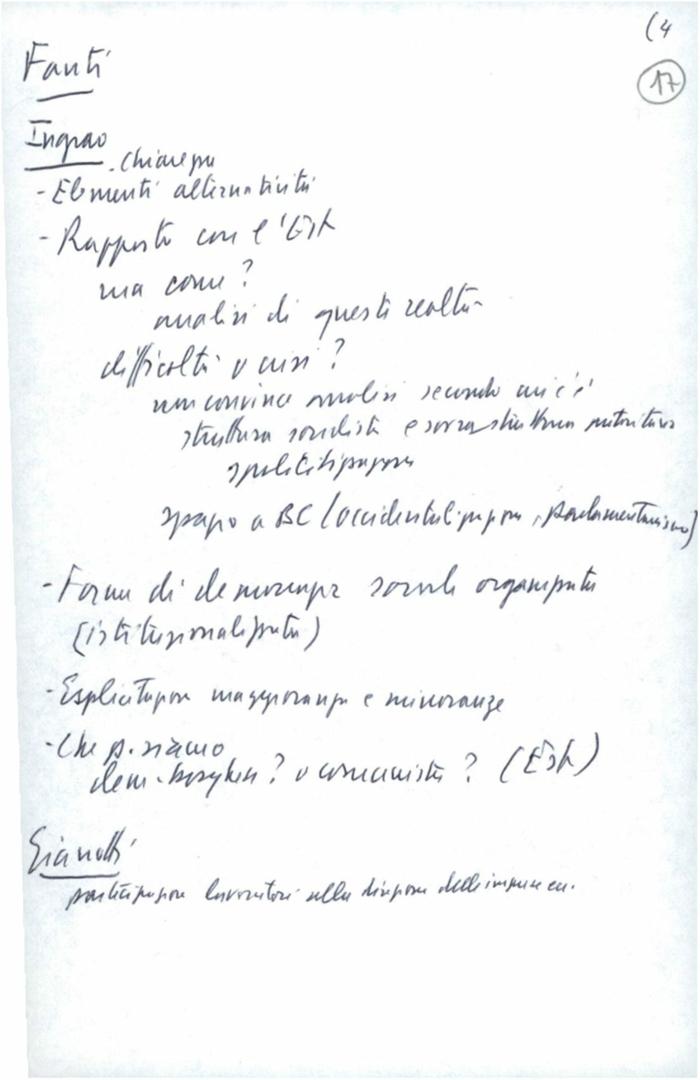 (4
17
Fanti
Ingrao
- Elementi alternatività
- Rapporto con l'Est
ma come?
analisi di queste realtà
difficoltà o crisi?
non convince analisi secondo cui c'è
struttura socialista e sovrastruttura
spazio a BC (occidentalizzazione, parlamentarismo)
- Forme di democrazia organizzata
(istituzionalizzata)
- Esplicitazione maggioranza e minoranze
- Che p. siamo
dem. borghese? o comunista? (Est)
Gianotti
partecipazione lavoratori alla direzione delle imprese ecc.